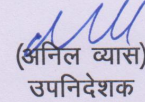 (अनिल व्यास)
उपनिदेशक